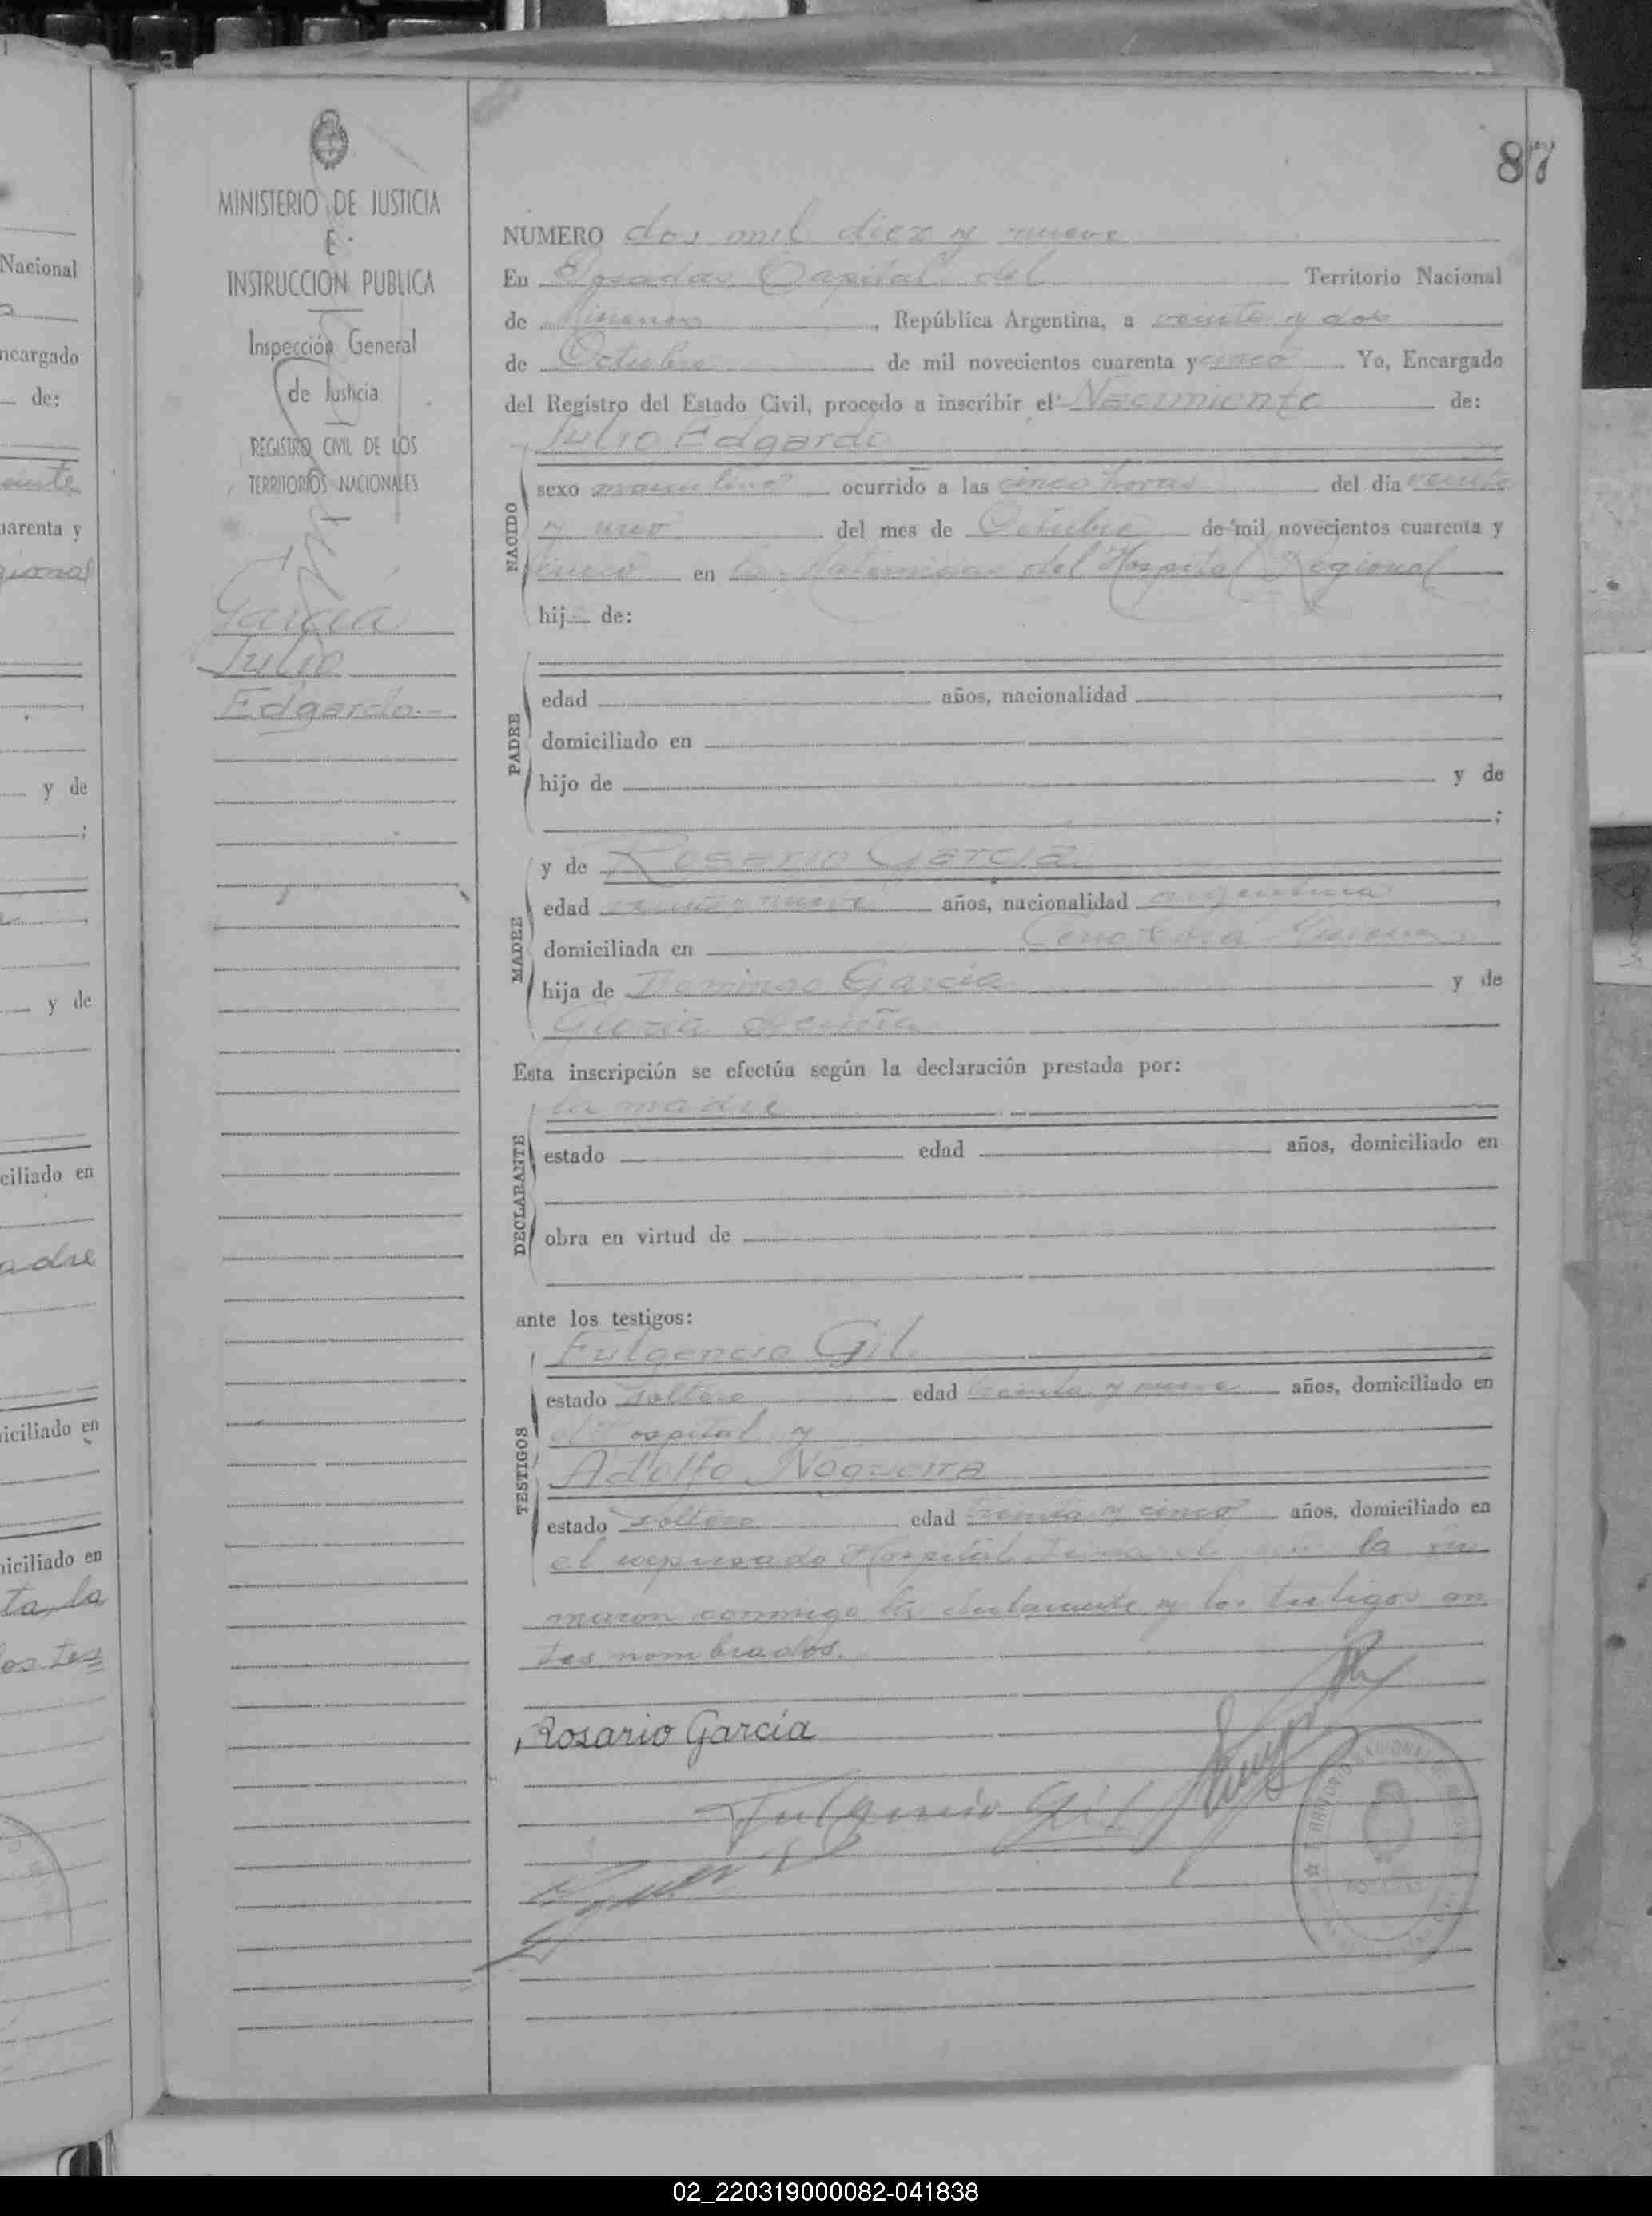 87
MINISTERIO DE JUSTICIA
E
INSTRUCCION PUBLICA
Inspección General
de Justicia
REGISTRO CIVIL DE LOS
TERRITORIOS NACIONALES
García
Julio
Edgardo.-
NUMERO dos mil diez y nueve
En Posadas Capital del Territorio Nacional
de Misiones, República Argentina, a veinte y dos
de Octubre de mil novecientos cuarenta y cinco Yo, Encargado
del Registro del Estado Civil, procedo a inscribir el Nacimiento de:
Julio Edgardo
NACIDO
sexo masculino ocurrido a las cinco horas del día veinte
y uno del mes de Octubre de mil novecientos cuarenta y
cinco en la Maternidad del Hospital Regional
hij de:
PADRE
edad años, nacionalidad
domiciliado en
hijo de y de
;
MADRE
y de Rosario García
edad nueve años, nacionalidad argentina
domiciliada en
hija de Domingo García y de
Gloria
Esta inscripción se efectúa según la declaración prestada por:
la madre
DECLARANTE
estado edad años, domiciliado en
obra en virtud de
ante los testigos:
TESTIGOS
Fulgencio Gil
estado soltero edad y nueve años, domiciliado en
el Hospital y
Adolfo Nogueira
estado soltero edad treinta y cinco años, domiciliado en
el expresado Hospital la
maron conmigo la declarante y los testigos an
tes nombrados.
Rosario García
Fulgencio Gil
Nacional
ncargado
de:
uarenta y
gional
y de
;
y de
ciliado en
adre
iciliado en
iciliado en
ta, la
os tes
02_220319000082-041838